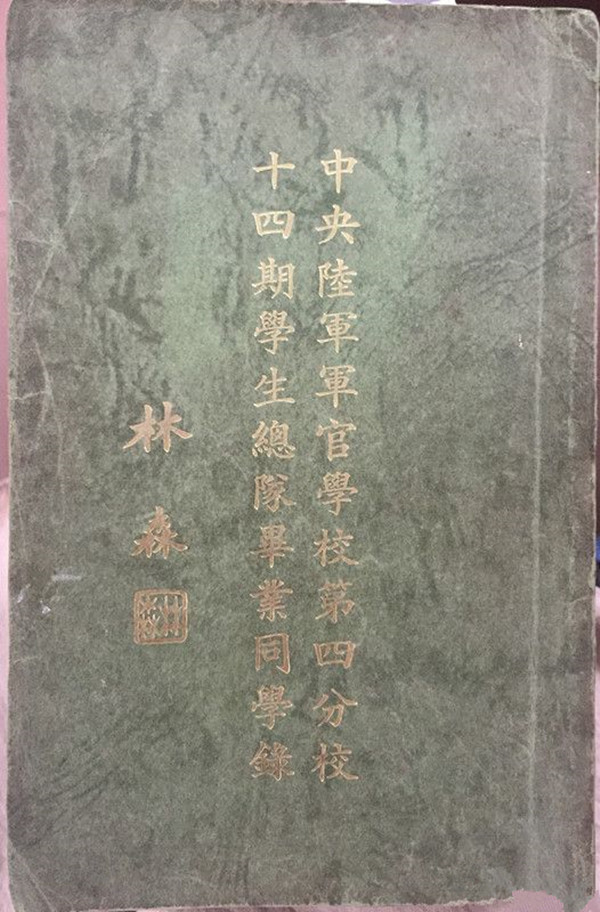 中央陸軍軍官學校第四分校
十四期學生總隊畢業同學錄
林森